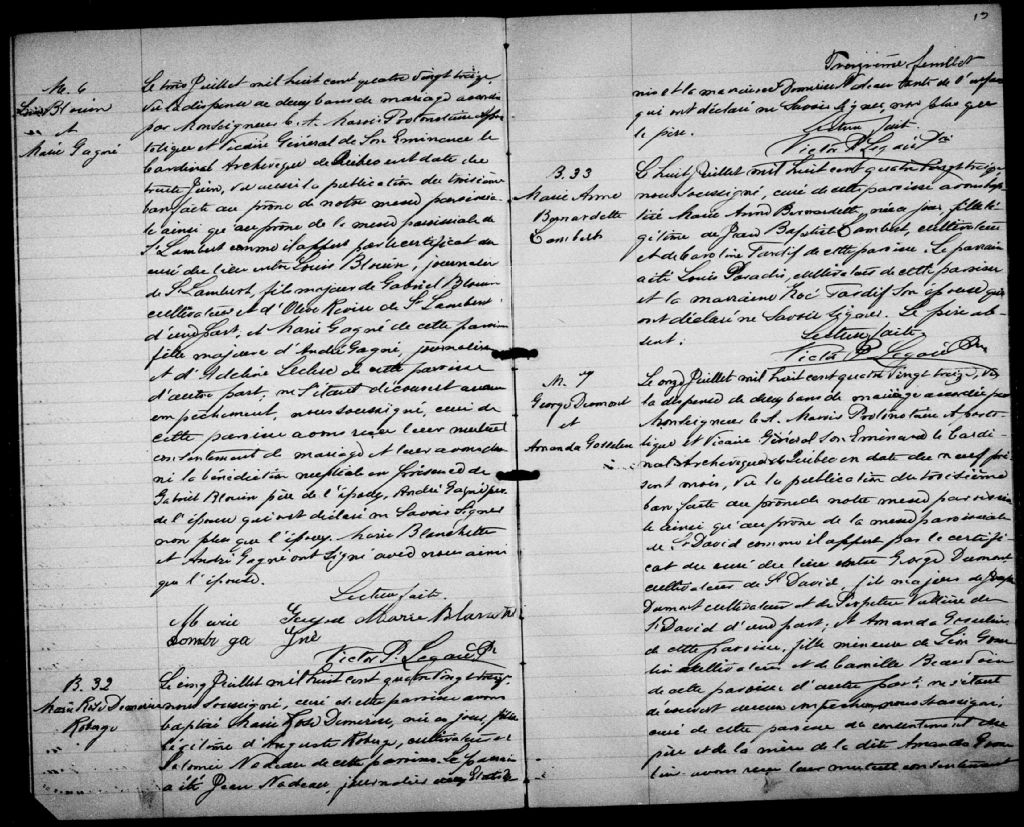 M. 6
Louis Blouin
et
Marie Gagné
Le trois Juillet mil huit cent quatre vingt treize,
Vu la dispense de deux bans de mariage accordée
par Monseigneur C. A. Marois Protonotaire Apos
tolique et Vicaire Général de Son Eminence le
Cardinal Archevêque de Québec en date du
trente Juin, vu aussi la publication du troisième
ban faite au prône de notre messe paroissia-
le ainsi qu'au prône de la messe paroissiale de
St Lambert comme il appert par le certificat du
curé du lieu entre Louis Blouin, journalier
de St Lambert, fils majeur de Gabriel Blouin
cultivateur et d'Olive de St Lambert
d'une part, et Marie Gagné de cette paroisse
fille majeure d'André Gagné, journalier
et d'Adeline Leclerc de cette paroisse
d'autre part, ne s'étant découvert aucun
empêchement, nous soussigné, curé de
cette paroisse avons reçu leur mutuel
consentement de mariage et leur avons don
né la bénédiction nuptiale en présence de
Gabriel Blouin père de l'époux, André Gagné père
de l'épouse qui ont déclaré ne Savoir Signer
non plus que l'époux. Marie Blanchette
et André Gagné ont Signé avec nous ainsi
que l'épouse.
Lecture faite.
Marie Marie
Victor P. Legaré Ptre
B. 32
Marie Rose Demerise
Roberge
Le cinq Juillet mil huit cent quatre vingt treize,
nous soussigné, curé de cette paroisse avons
baptisé Marie Rose Demerise, née ce jour, fille
légitime d'Auguste Roberge, cultivateur et
Salomée Nadeau de cette paroisse. Le parrain
a été Jean Nadeau, journalier
Troizième feuillet
nis et la marraine Demerise Nadeau tante de l'enfant
qui ont déclaré ne Savoir Signer non plus que
le père.
Lecture faite
Victor P Legaré Ptre
B. 33
Marie Anne
Bernardette
Lambert
Le huit Juillet mil huit cent quatre vingt treize
nous soussigné, curé de cette paroisse avons bap
tisé Marie Anne Bernardette, née ce jour, fille lé
gitime de Jean Baptiste Lambert, cultivateur
et de Caroline Tardif de cette paroisse. Le parrain
a été Louis Paradis, cultivateur de cette paroisse
et la marraine Zoé Tardif Son épouse qui
ont déclaré ne Savoir Signer. Le père ab-
sent.
Lecture faite
Victor P Legaré Ptre
M. 7
George Dumont
et
Amanda Gosselin
Le onze Juillet mil huit cent quatre vingt treize, vu
la dispense de deux bans de mariage accordée par
Monseigneur C. A. Marois Protonotaire Aposto-
lique et Vicaire Général Son Eminence le Cardi-
nal Archevêque de Québec en date du neuf pré
sent mois, vu la publication du troisième
ban faite au prône de notre messe paroissia
le ainsi qu'au prône de la messe paroissiale
de St David comme il appert par le certifi-
cat du curé du lieu entre George Dumont
cultivateur de St David, fils majeur de
Dumont cultivateur et de Perpétue Vallière de
St David d'une part, et Amanda Gosselin
de cette paroisse, fille mineure de Gosse
lin cultivateur et de Camille Beaudoin
de cette paroisse d'autre part, ne s'étant
découvert aucun empêchement, nous soussigné,
curé de cette paroisse du consentement du
père et de la mère de la dite Amanda Gosse
lin avons reçu leur mutuel consentement